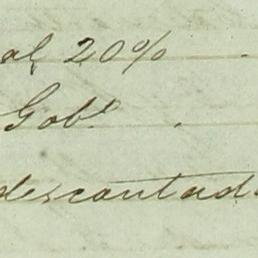 al 20%
Gob.
descontad